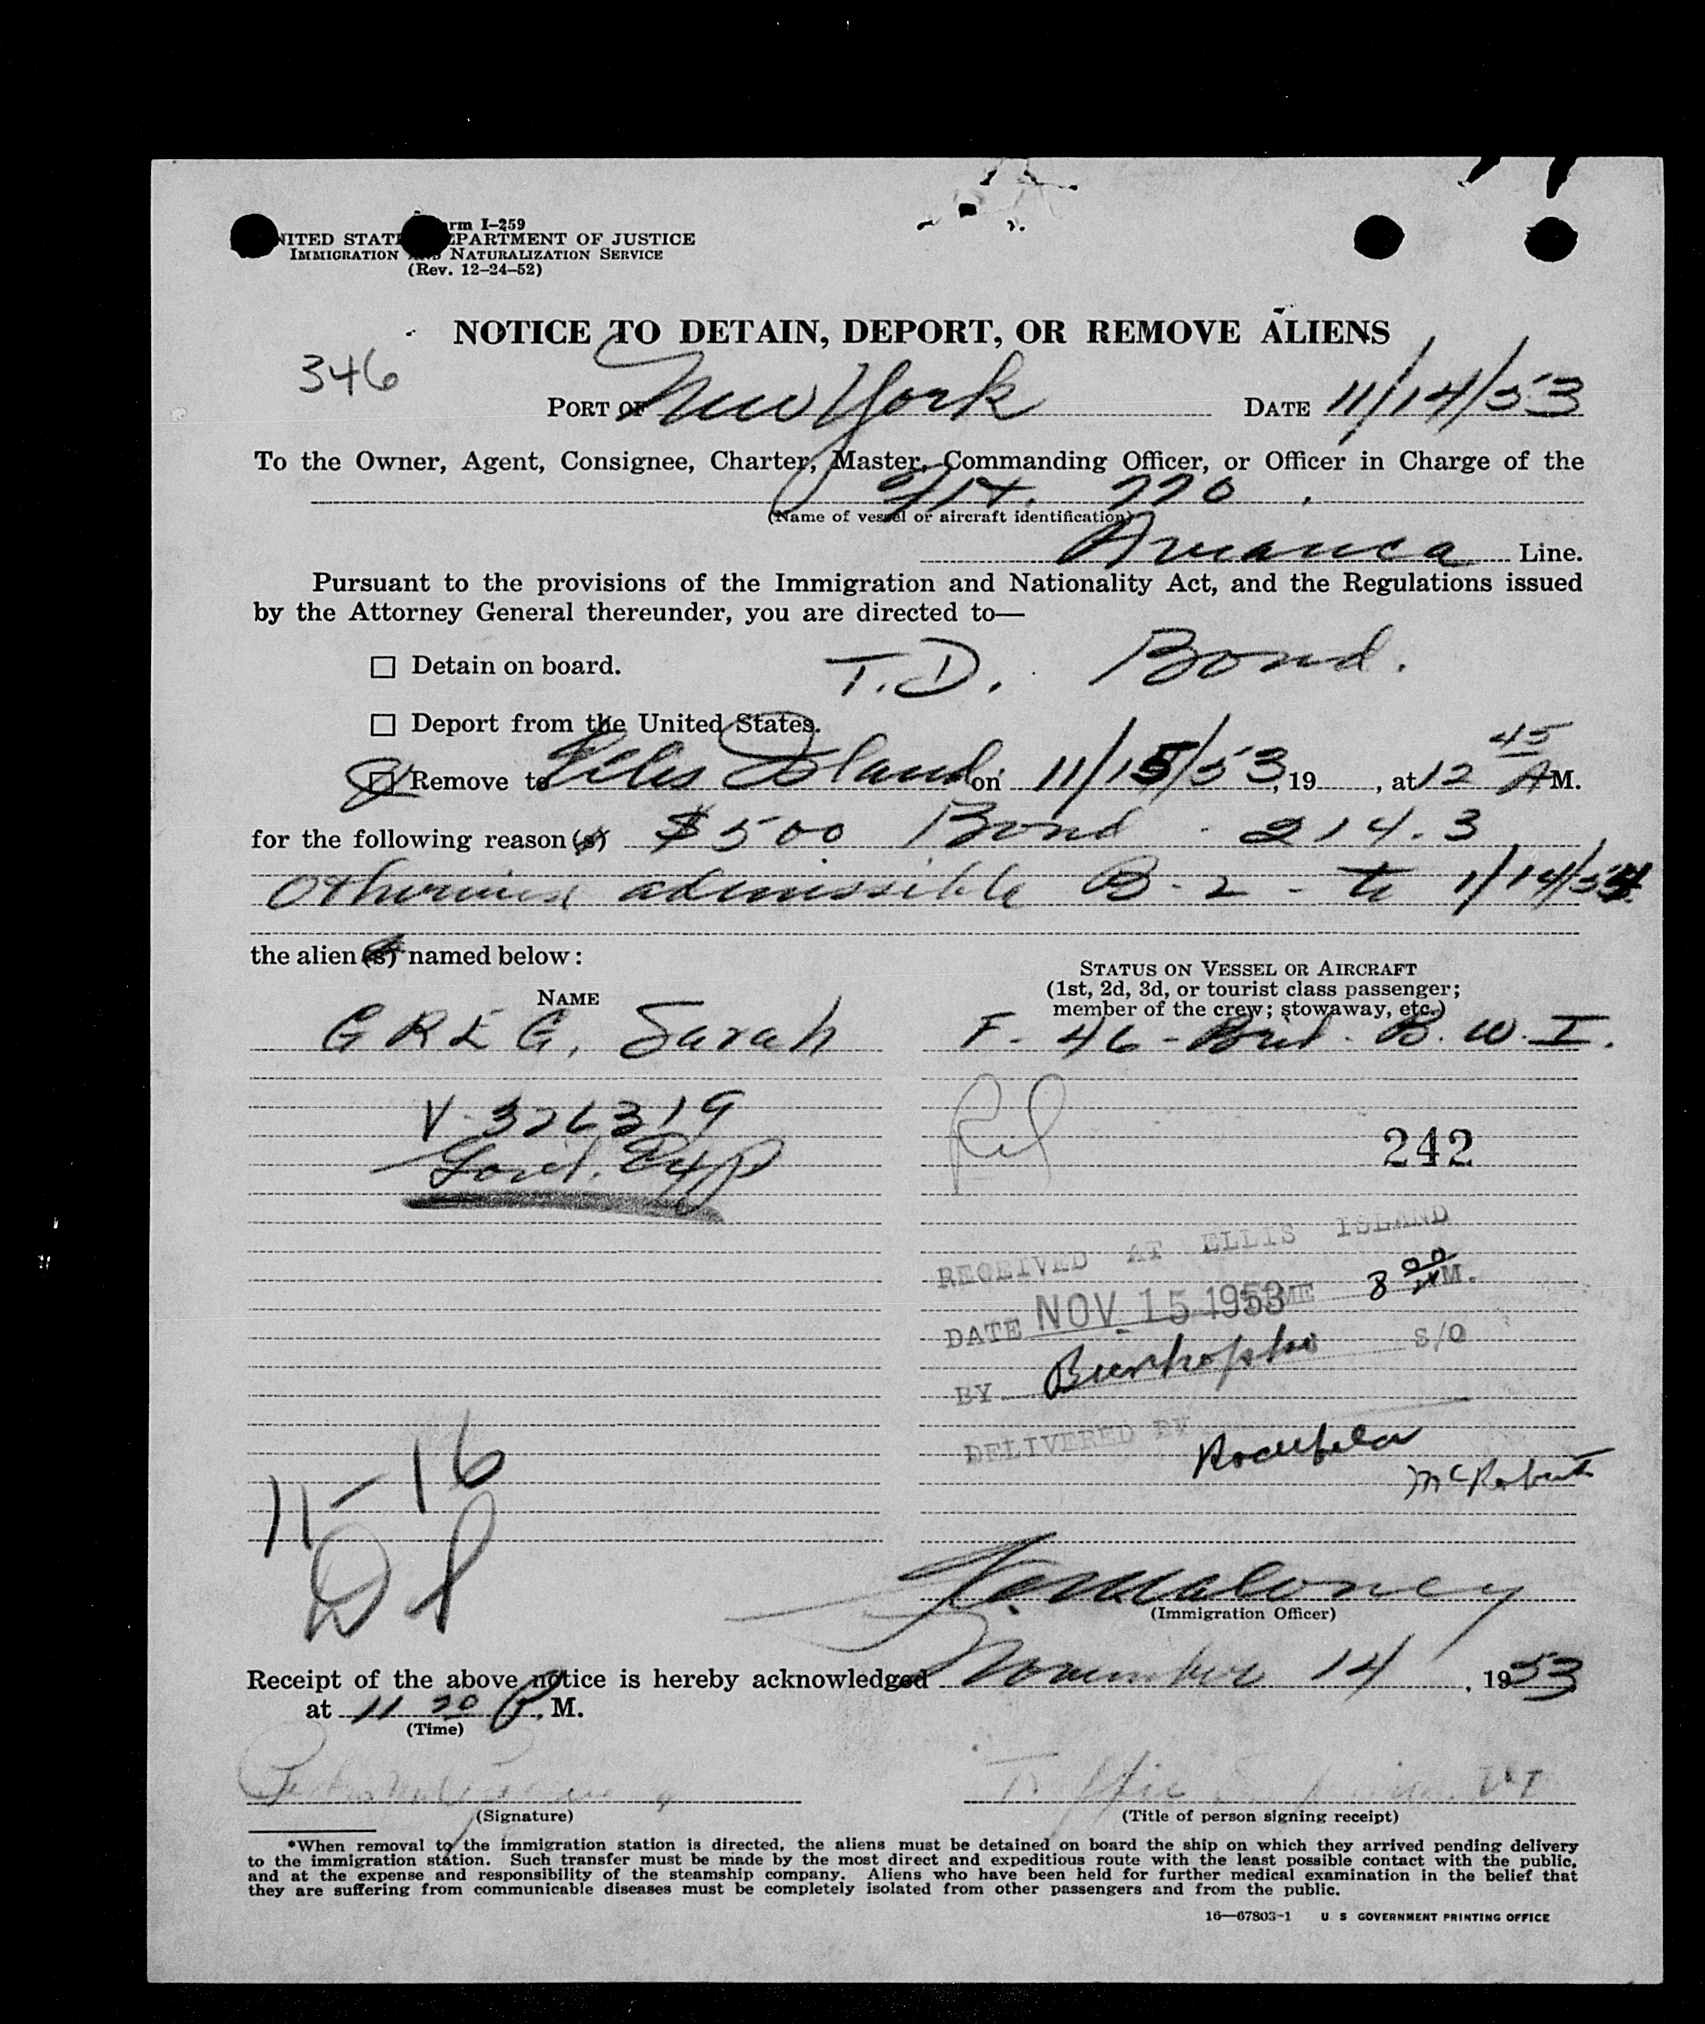 Form I-259
UNITED STATES DEPARTMENT OF JUSTICE
IMMIGRATION AND NATURALIZATION SERVICE
(Rev. 12-24-52)
NOTICE TO DETAIN, DEPORT, OR REMOVE ALIENS
346
PORT OF New York DATE 11/14/53
To the Owner, Agent, Consignee, Charter, Master, Commanding Officer, or Officer in Charge of the
Flt. 770
(Name of vessel or aircraft identification)
Avianca Line.
Pursuant to the provisions of the Immigration and Nationality Act, and the Regulations issued
by the Attorney General thereunder, you are directed to—
☐ Detain on board. T.D. Bond.
☐ Deport from the United States.
☐ Remove to Ellis Island on 11/15/53, 19 , at 12 45 A M.
for the following reason(s) $500 Bond - 214.3
Otherwise admissible B-2 - to 1/14/54
the alien(s) named below:
NAME
STATUS ON VESSEL OR AIRCRAFT
(1st, 2d, 3d, or tourist class passenger;
member of the crew; stowaway, etc.)
GREG, Sarah F-46-Brit. B.W.I.
V-326319
242
RECEIVED AT ELLIS ISLAND
DATE NOV 15 1953 TIME 8 00 M.
S/O
BY
DELIVERED BY
McRoberts
11-16
(Immigration Officer)
Receipt of the above notice is hereby acknowledged November 14, 1953
at 11 20 P. M.
(Time)
(Signature)
(Title of person signing receipt)
*When removal to the immigration station is directed, the aliens must be detained on board the ship on which they arrived pending delivery
to the immigration station. Such transfer must be made by the most direct and expeditious route with the least possible contact with the public,
and at the expense and responsibility of the steamship company. Aliens who have been held for further medical examination in the belief that
they are suffering from communicable diseases must be completely isolated from other passengers and from the public.
16—67803-1 U S GOVERNMENT PRINTING OFFICE